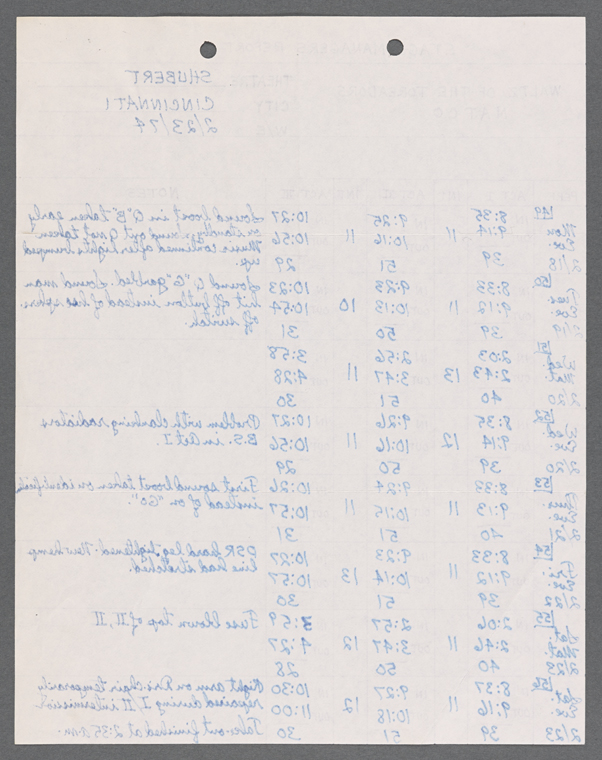 STAGE MANAGERS
WALTZ OF THE TOREADORS THEATRE SHUBERT
CITY CINCINNATI
2/23/74
NOTES
49 8:35 9:25 10:27 Sound boost in Q "B" taken early
Mon. 9:14 11 10:16 11 10:56 on standby, sound out Q not taken.
Eve. Music continued after lights bumped
2/18 39 51 29 up.
50 8:33 9:23 10:23 Sound Q "G" garbled. Sound man
Tues 9:12 11 10:13 10 10:54 hit off button instead of his spkrs.
Eve off switch.
2/19 39 50 31
51 2:03 2:56 3:58
Wed. 2:43 13 3:47 11 4:28
Mat.
2/20 40 51 30
52 8:35 9:26 10:27 Problem with clanking radiators
Wed. 9:14 12 10:16 11 10:56 B.S. in Act I.
Eve.
2/20 39 50 29
53 8:33 9:24 10:26 First sound boost taken on
Thur. 9:13 11 10:15 11 10:57 instead of on "GO".
Eve.
2/21 40 51 31
54 8:33 9:23 10:27 DSR leg tightened. New hemp
Fri. 9:12 11 10:14 13 10:57 line had stretched.
Eve.
2/22 39 51 30
55 2:06 2:57 3:59 Fuse blown top of III, II
Sat. 2:46 11 3:47 12 4:27
Mat.
2/23 40 50 28
56 8:37 9:27 10:30 Right arm on temporarily
Sat. 9:16 11 10:18 12 11:00 repaired during I, II intermission
Eve.
2/23 39 51 30 Take-out finished at 2:35 a.m.